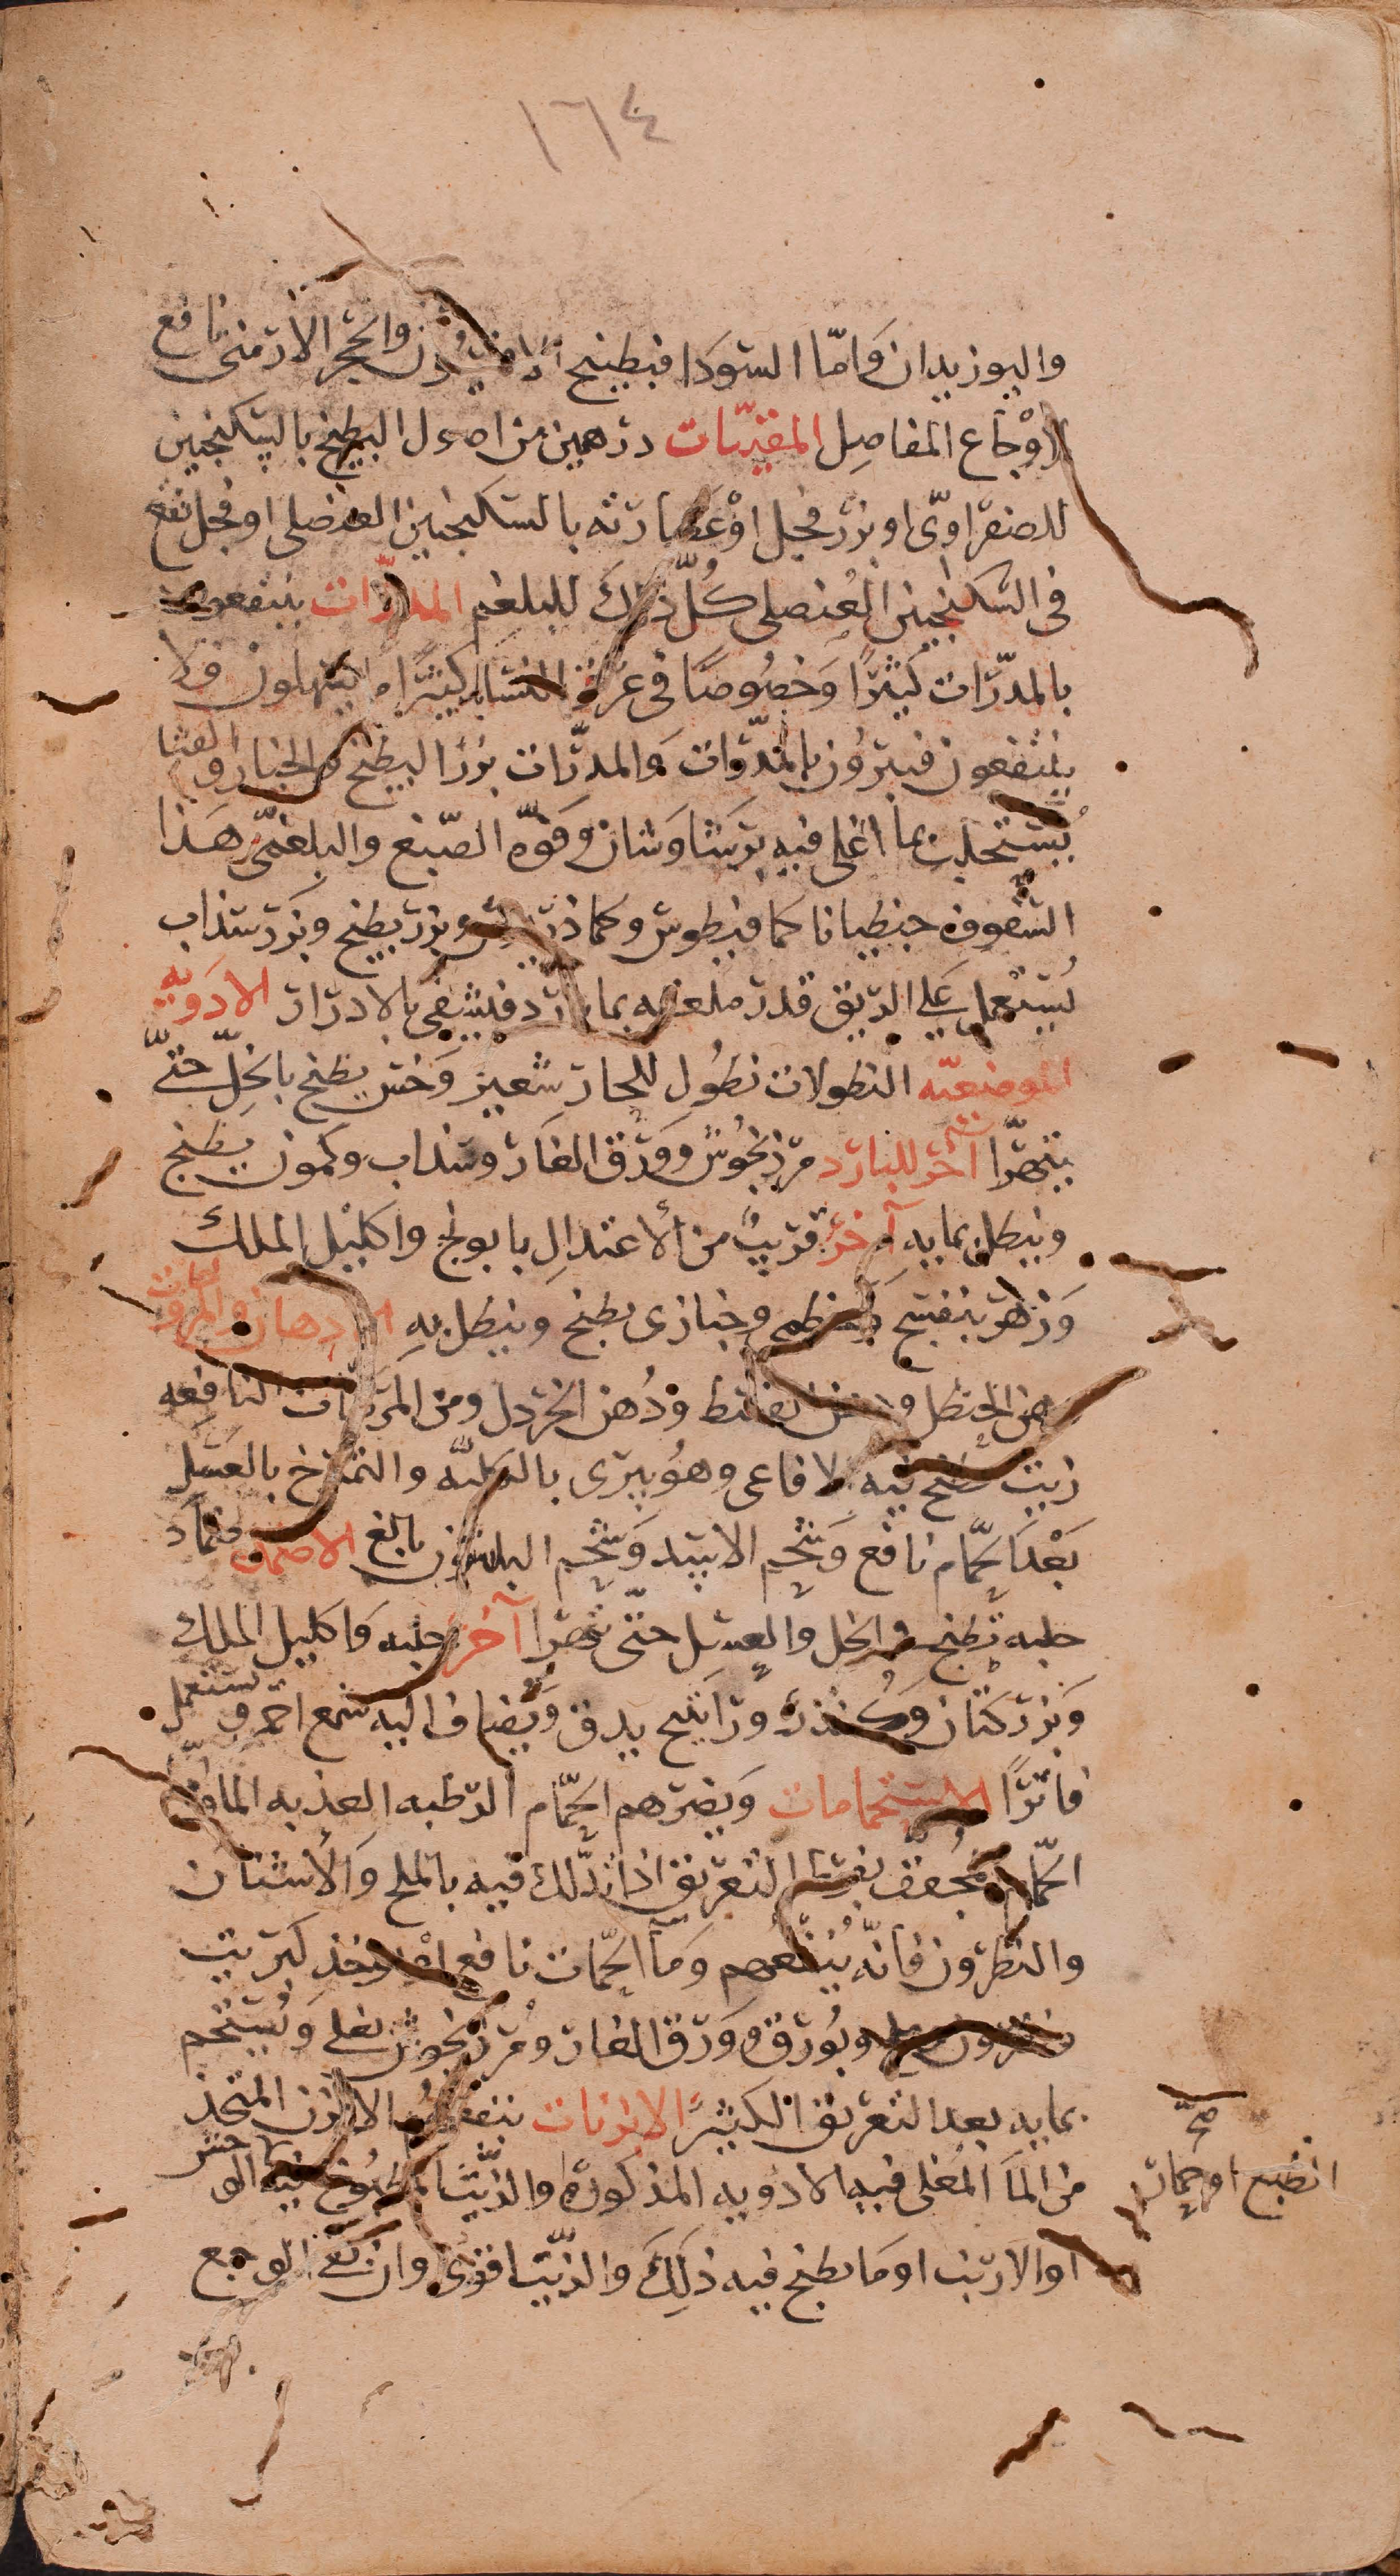 ١٦٤
والبوزيدان وَامّا السّوَدا فبطبيخ الافتيمُون والحَجر الارمنى نافع
لاوْجاع المفاصِل المقيّيات درهمين من اصول البطيخ بالسّكنجبين
للصفراوىّ او بزر فجل اوْ عَصارته بالسّكنجبين العنصلى او فجل نقع
فى السّكنجبين العُنصلى كُلّ ذلكَ للبلغم المدرّات ينتفعون
بالمدرّات كثيرًا وَخصُوصًا فى عرق النسَا كثيرًا ما يسهلون فلا
ينتفعون فيبرُون بالمدّرات وَالمدرّات بزرُ البطيخ والخيار والقثا
يُستحلب بما اغلى فيه برسَاوَشان وفوّه الصّبغ والبلغمىّ هَذا
السّفوف جنطيانا كمافيطوس وكماذريوس وبزر بطيخ وبَزر سَذاب
يُستعمل عَلى الريق قدر ملعقه بما بارد فيشفى بالادرار الادَويه
الموضعيّه النطولات نطُول للحار شعير وَخس يطبخ بالخلّ حتّى
يتهرّا آخر للبارد مرزنجُوش وَوَرَق الغَار وسَذاب وكمون يطبخ
وينطل بمايهِ آخرُ قريبٌ من الأعتدالِ بابونج واكليل الملك
وَزهر بنفسَج وخطمى وخبازى يطبخ وينطل بهِ الادِهان والمرُوخَات
دهن الحنظل ودهن القسط ودُهن الخردل ومن المرَوخات النافِعه
زيت طبخ فيه الافاعى وهُو يبرى بالكليّه والتمرّخ بالعَسَل
بَعْد الحَمّام نافع وَشحم الاسَد وَشحم البلشون بالغ الاضمدَه ضمَاد
حلبه تطبخ فى الخل والعسَل حتّى تتهرا آخر حلبه وَاكليل الملك
وَبزر كتّان وَكُندُر وَراتينج يدق وَيُضاف اليه شمع احمر ويستعمل
فَاترًا الاستحمامات وَيضرّهم الحَمّام الرّطبه العذبه الما وَامّا
الحَمّام المجفف بفرط التعريق اذا تدّلك فيه بالملح وَالأشنَان
والنطرُون فَانّه يُنفعهم وَمآ الحّمات نافع اوْ يوخذ كبريت
ونطرون وملح وبُورق وَوَرَق الغار ومُرزنجوش يغلى وَيُستحَم
بمايه بعد التعريق الكثيرً الابزنات ينفعُهُم الابزن المتخذ
من المآ المُغلى فيه الادويه المذكورة والزّيت المطبُوخ فيه الوحش
او الارنب او مَا يطبخ فيه ذلِكَ والزيّت اقوى وان بقى الوجع
صحّ